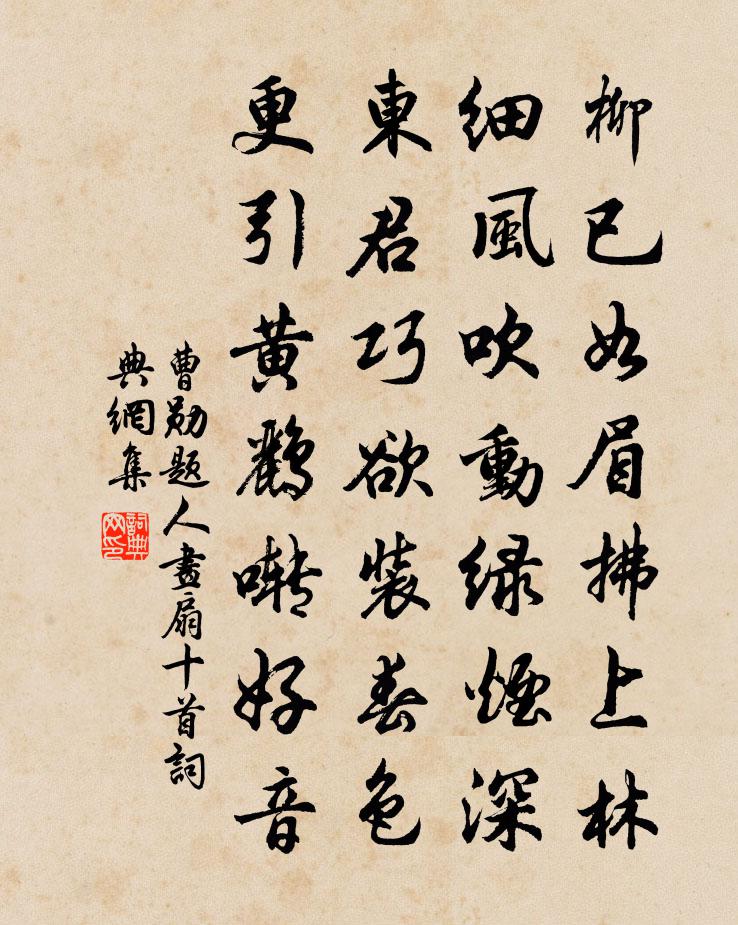 柳已如眉拂上林
細風吹動緑煙深
東君巧欲裝春色
更引黄鸝囀好音
曹勛題人畫扇十首詞
典網集
詞典网印